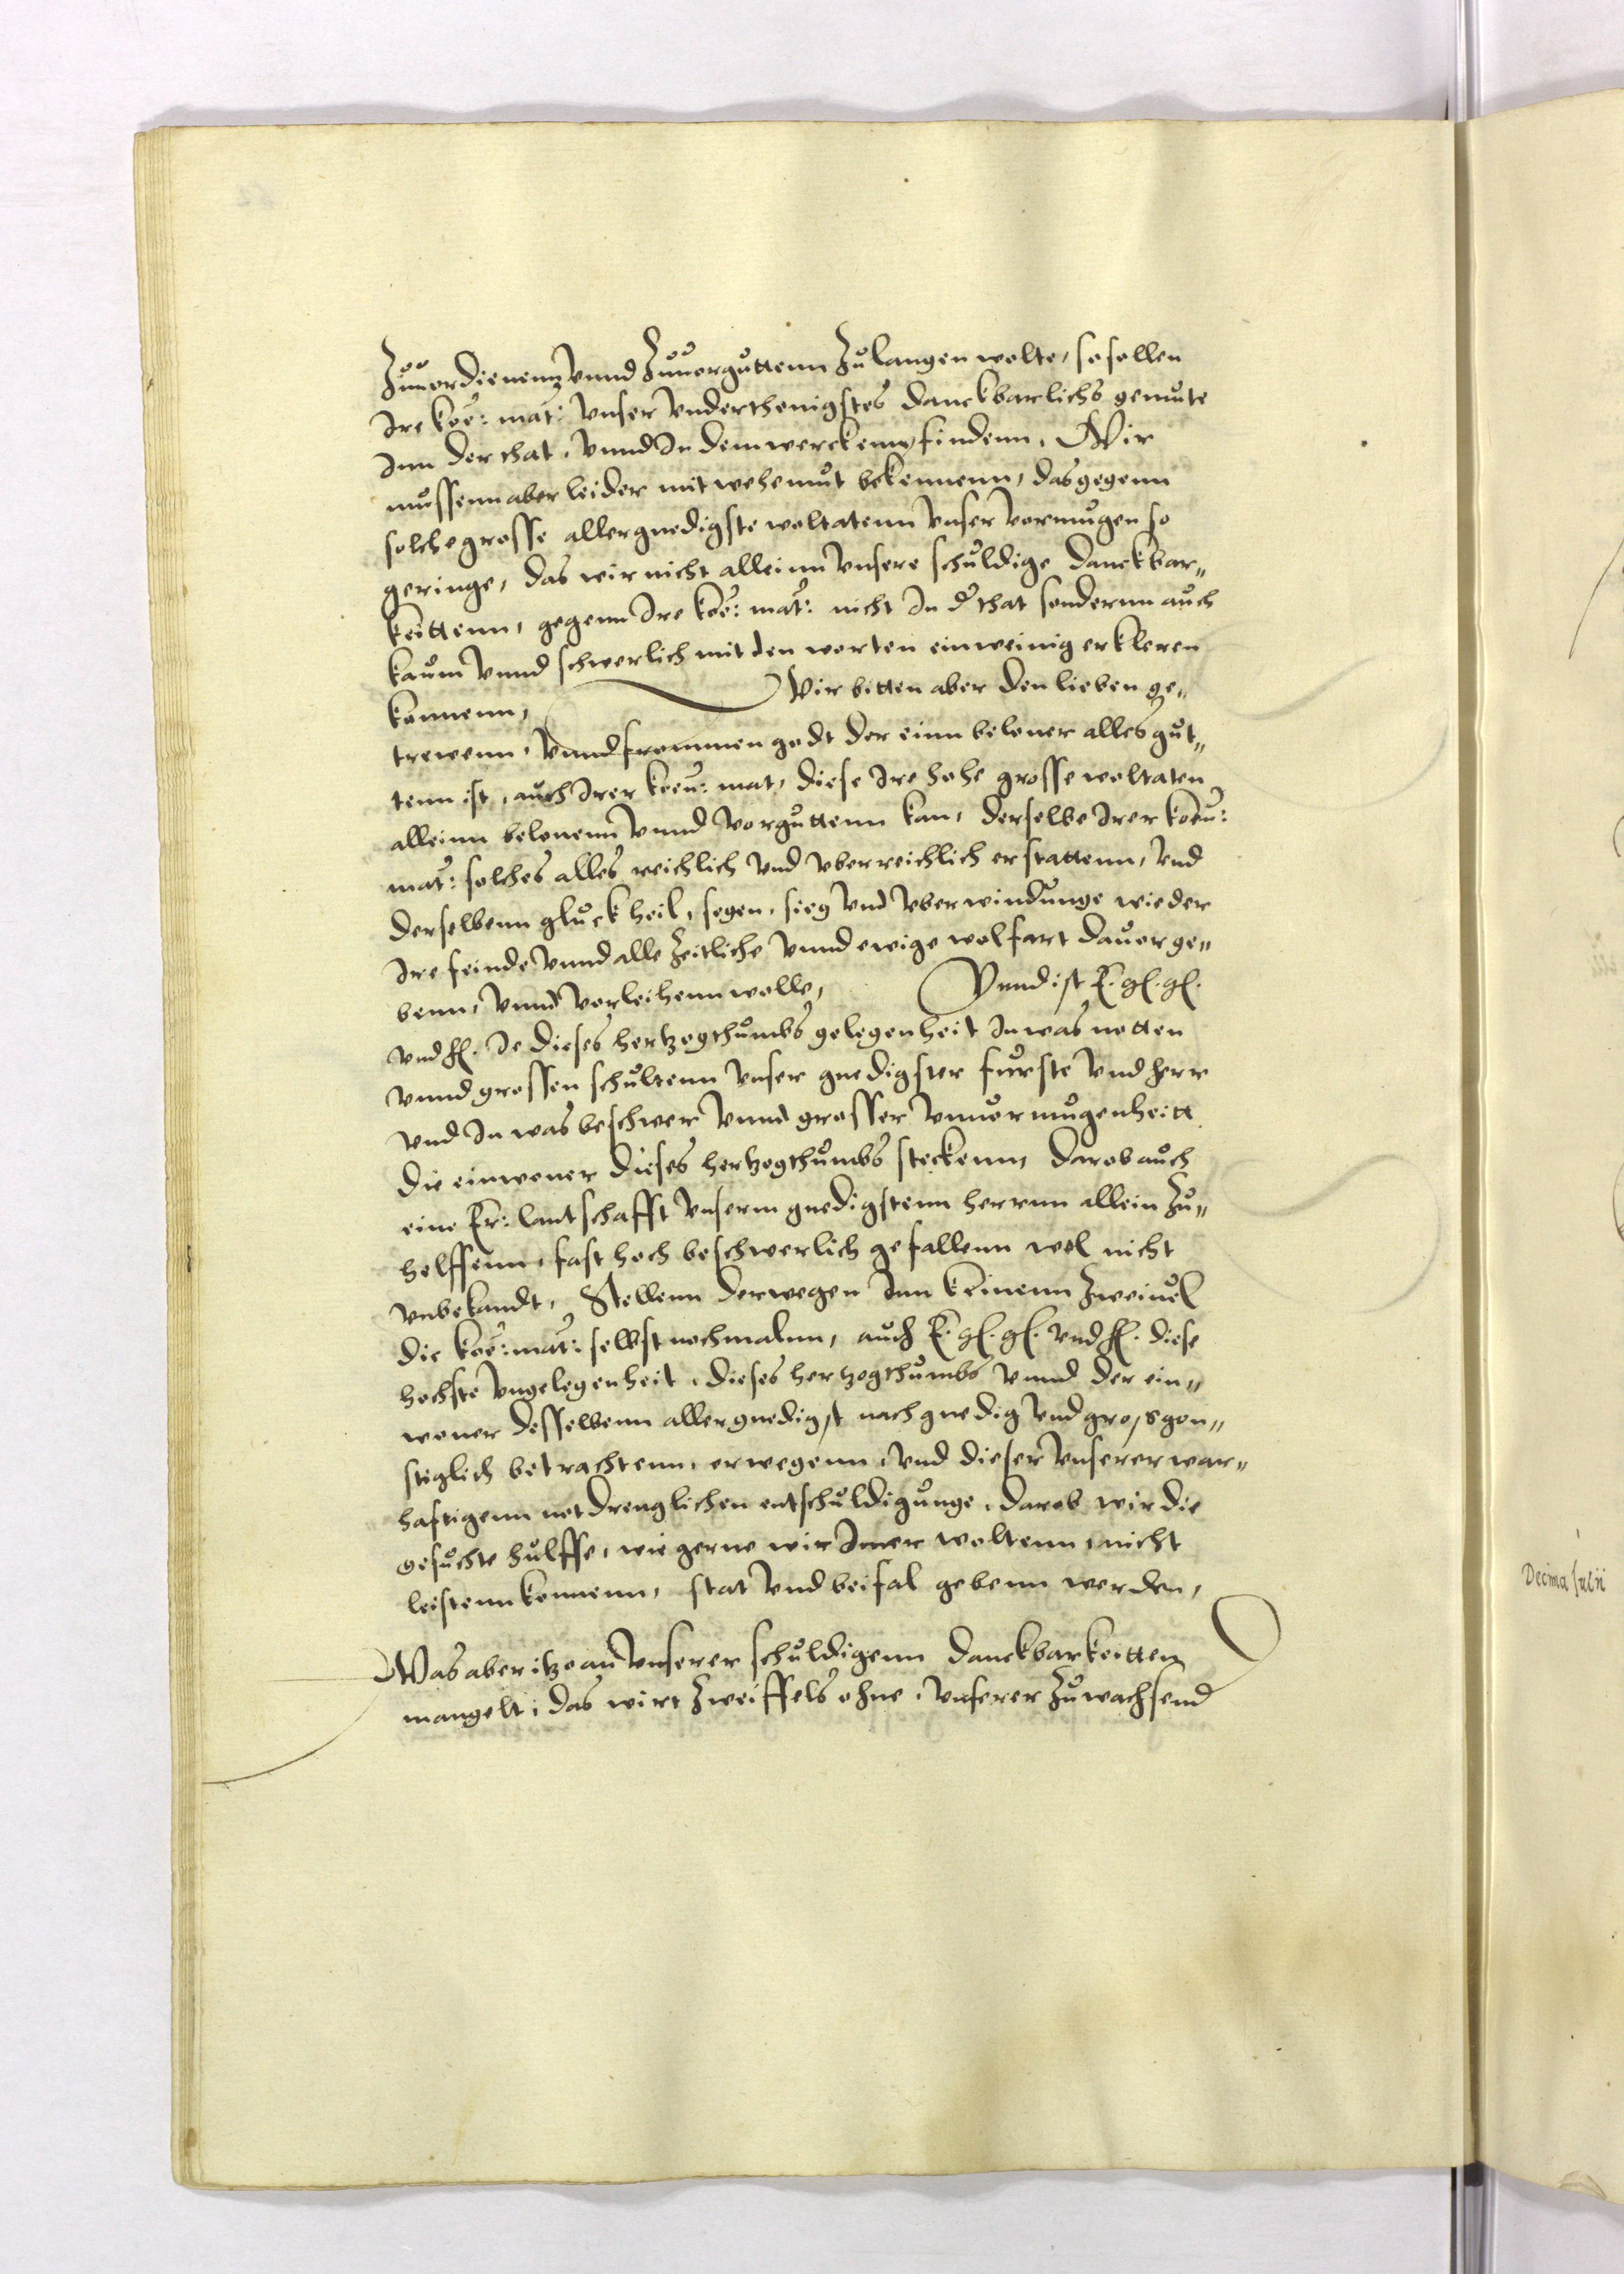 Zuuordienenn, vnnd Zuuorguttenn Zulangen wolte, so sollen
Ire Koe: mat: vnser vnderthenigstes danckbarlichs gemute
Inn der that, vnnd In dem werck empfindenn, Wir
mussenn aber leider mit wehemut bekennenn, das gegenn
solche grosse allergnedigste woltatenn vnser vormugen so
geringe, das wir nicht alleinn vnsere schuldige danckbar„
keittenn, gegenn Ire Koe: mat: nicht In der that sondernn auch
kaum vnnd schwerlich mit den worten ein weinig erkleren
konnenn, Wir bitten aber den lieben ge„
trewenn, vnnd frommen godt der einn beloner alles gut„
tenn ist, auch Irer Koen: mat, diese Ire hohe grosse woltaten
alleinn belonenn vnnd vorguttenn kan, derselbe Irer Koen:
mat: solches alles reichlich vnd vberreichlich erstattenn, vnd
derselbenn gluck heil, segen, sieg vnd vberwindunge wieder
Ire feinde vnnd alle Zeitliche vnnd ewige wolfart dauor ge„
benn, vnnd vorleihenn wolle, Vnnd ist E. g. g.
vnd h. Je dieses hertzogthumbs gelegenheit In was notten
vnnd grossen schultenn vnser gnedigster furste vnd herr
vnd In was beschwer vnnd grosser vnuormugenheitt
die einwoner dieses hertzogthumbs steckenn, darob auch
eine Er: lantschafft vnserm gnedigstenn herrnn allein Zu„
helffenn, fast hoch beschwerlich gefallenn wol nicht
vnbekandt, Stellenn derwegen Inn keinenn Zweiuel
die Koe: mat: selbst nochmalnn, auch E. g. g. vnd h. diese
hochste vngelegenheit, dieses hertzogthumbs vnnd der ein„
woner desselbenn allergnedigst nach gnedig vnd grosgon„
stiglich betrachtenn, erwegenn, vnd dieser vnserer war„
haftigenn notdrenglichen entschuldigunge, darob wir die
gesuchte hulffe, wie gerne wir Immer woltenn, nicht
leistenn konnenn, stat vnd beifal gebenn werden,
Was aber itzo an vnserer schuldigenn danckbarkeitten
mangelt, das wirt Zweiffels ohne, vnserer Zuwachsend
Decima